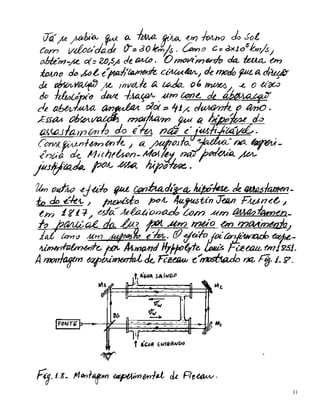 Já se sabia que a terra gira em torno do Sol
com velocidade v = 30 km/s. Como c = 3x10⁵ km/s,
obtém-se α = 20,5" de arco. O movimento da terra em
torno do sol é praticamente circular, de modo que a direção
de observação se inverte a cada 06 meses, e o eixo
do telescópio deve traçar um cone de aberração
de abertura angular 2α = 41", durante o ano.
Essas observações mostram que a hipótese do
arrastamento do éter não é justificável.
Consequentemente, a suposta "falha" na experi-
ência de Michelson-Morley não poderia ser
justificada por essa hipótese.
Um outro efeito que contradiz a hipótese de arrastamen-
to do éter, previsto por Augustin Jean Fresnel,
em 1817, está relacionado com um arrastamen-
to parcial da luz por um meio em movimento,
tal como um suposto éter. O efeito foi confirmado expe-
rimentalmente por Armand Hyppolyte Louis Fizeau em 1851.
A montagem experimental de Fizeau é mostrado na Fig. 1.8.
ÁGUA SAINDO
M1
M2
Vw
FONTE
Vw
M3
ÁGUA ENTRANDO
Fig. 1.8- Montagem experimental de Fizeau.
31